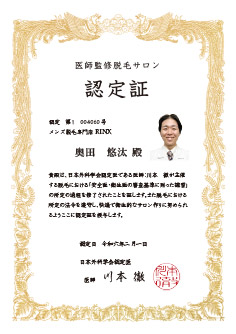 医師監修脱毛サロン
認定証
認定 第1 004060号
メンズ脱毛専門店 RINX
奥田 悠汰 殿
貴殿は、日本外科学会認定医である医師:川本 徹が主催
する脱毛における「安全面・衛生面の審査基準に則った講習」
の所定の過程を修了されたことを証します。また脱毛における
所定の法令を遵守し、快適で衛生的なサロン作りに努められ
るようここに認定証を授与します。
認定日 令和六年二月一日
日本外科学会認定医
医師 川本 徹